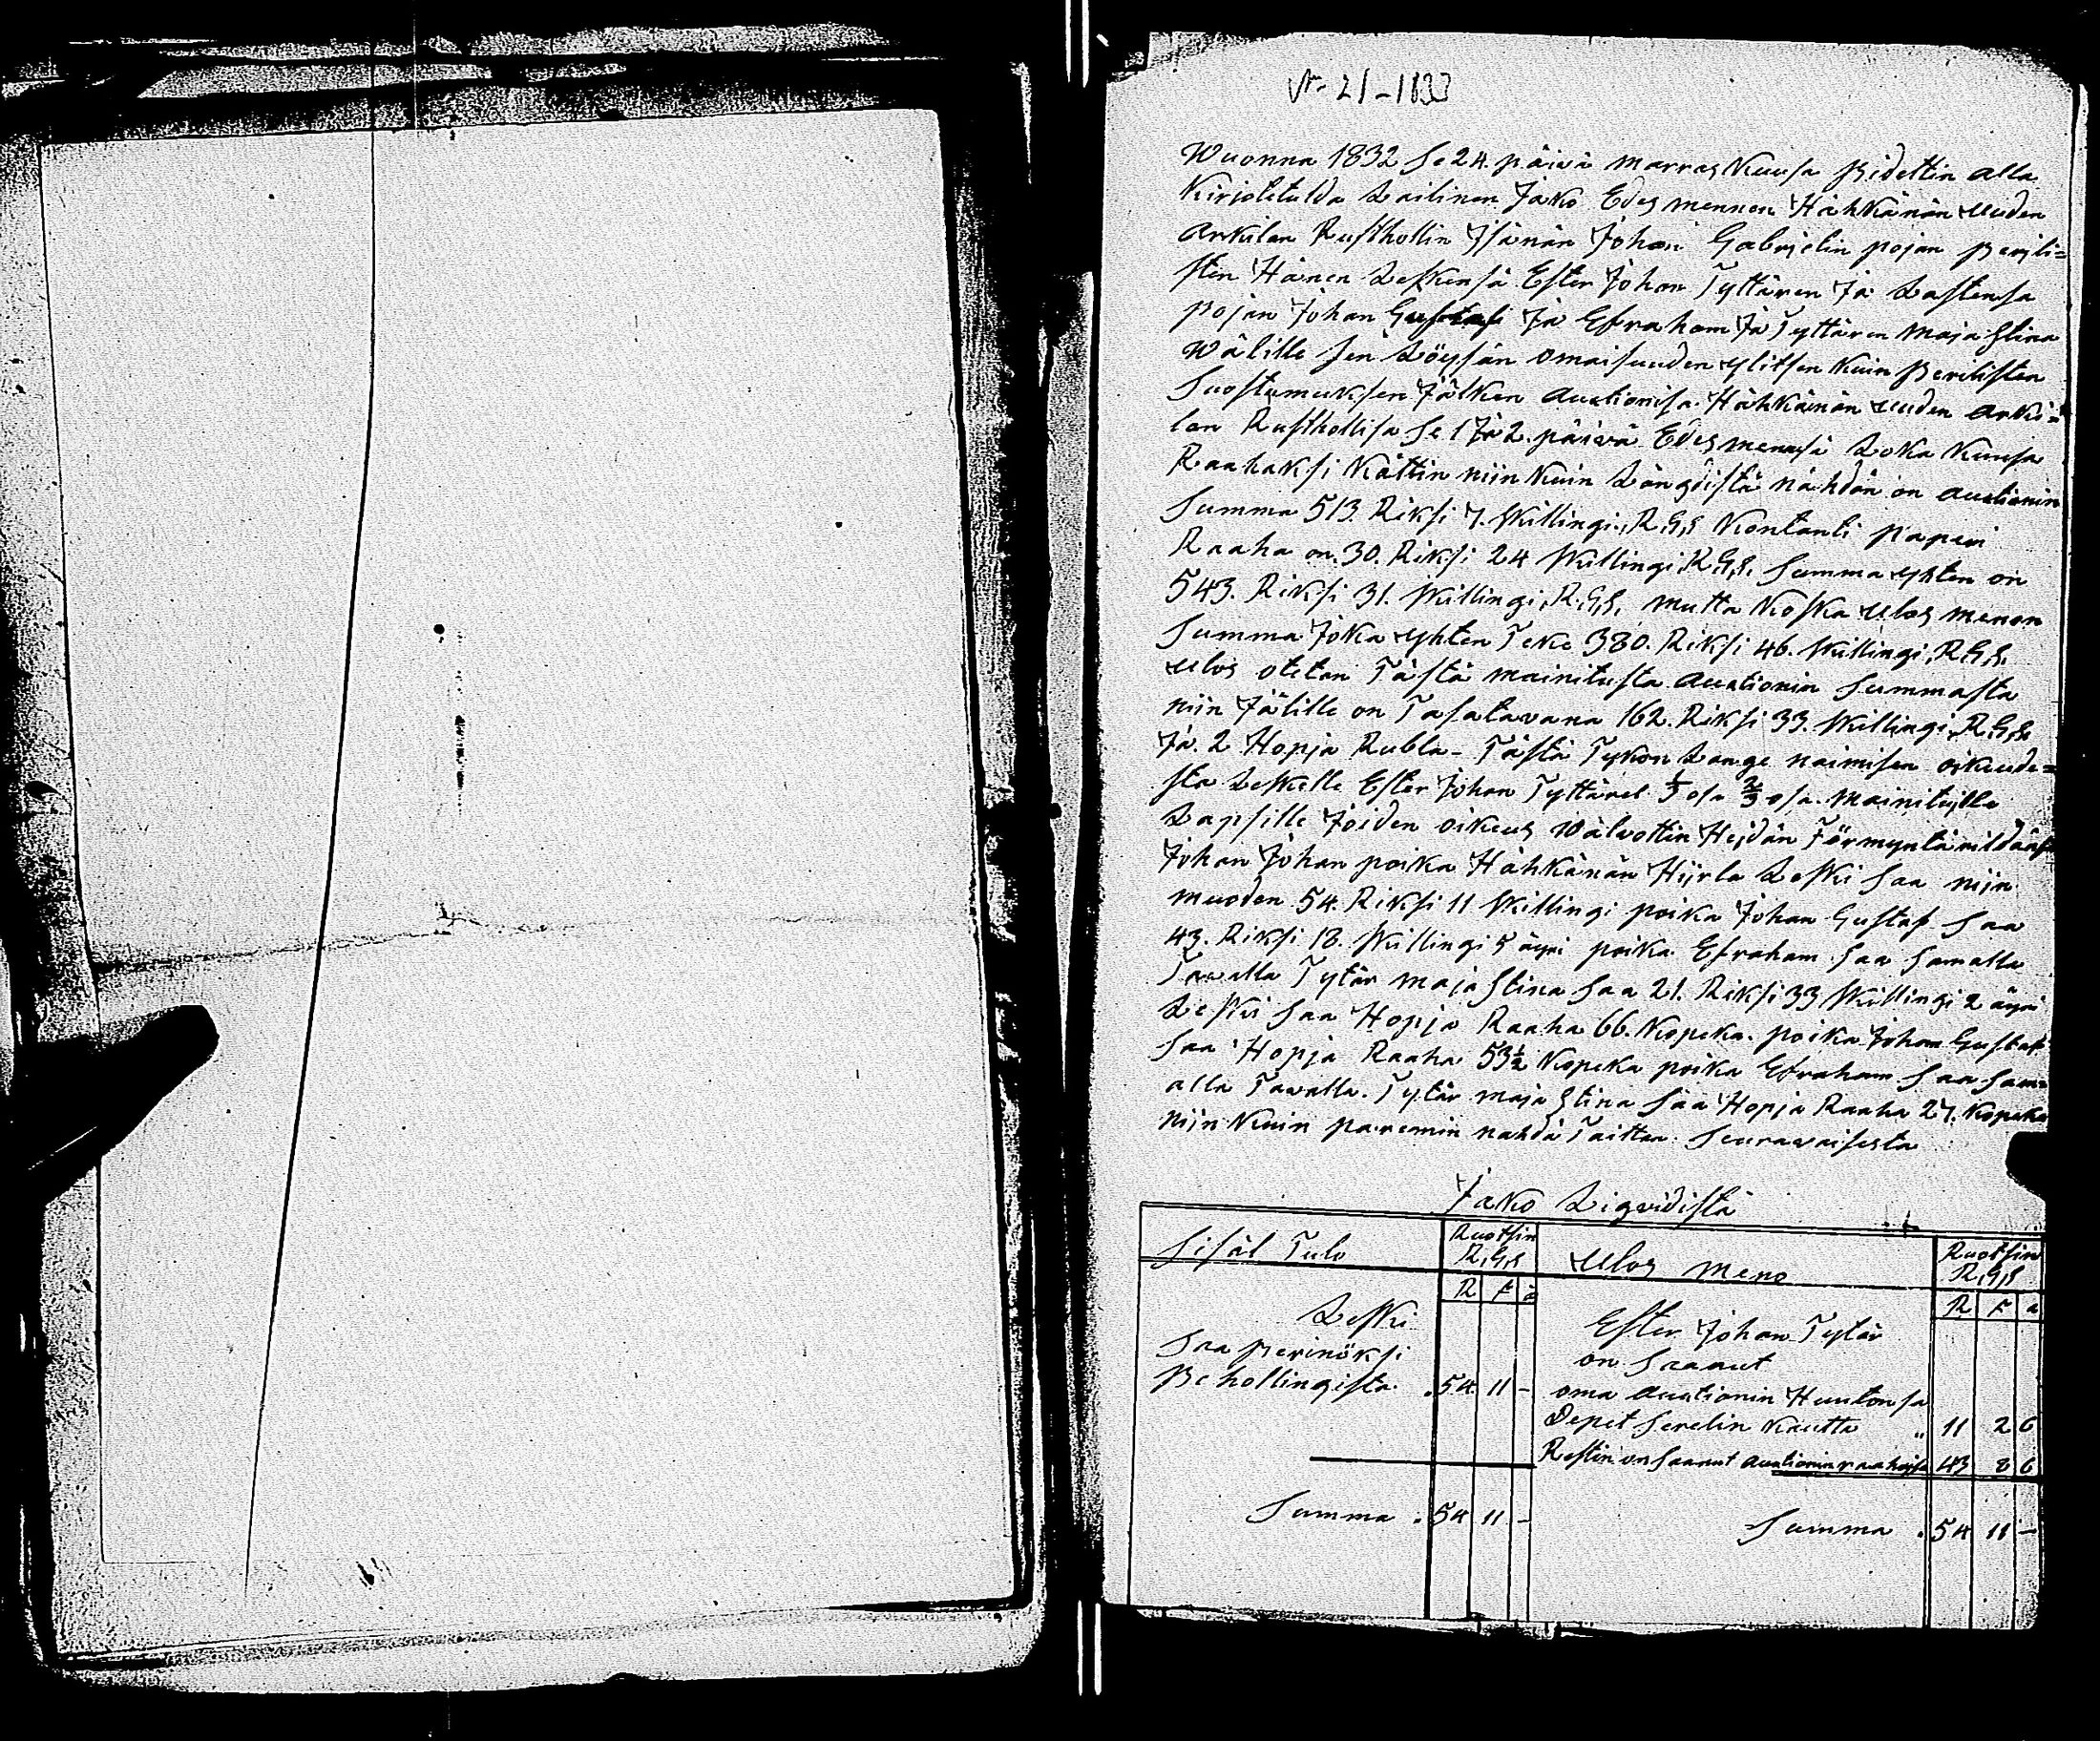 N:o 21-1833
Wuonna 1832 se 24. päivä marras Kuusa Pidettin alla
Kirjotetulda Lailinen Jako Edes mennen Hähkänän Uuden
Arkilan Rusthollin Jsänän Johan Gabrjelin pojan Perjli=
sten Hänen Leskensä Ester Johan Tyttären Ja Lastensa
Pojan Johan Gustafi Ja Efraham Ja Tyttären Maja Stina
Wälille sen Löysän omaisuuden Ylitsen Kuin Perilisten
Suostumuksen Jälken Auctionisa Hähkänän Uuden Arki=
lan Rusthollisa se 1 Ja 2. päivä Edesmenesä Loka Kuusa
Raahaksi Kättin niin Kuin Längdistä nähdän on Auctionin
Summa 513. Riksi 7. Skillingi, R,G,S Kontanti Paperi
Raaha on 30. Riksi 24 Skillingi, R,G,S. Summa Yhten on
543. Riksi 31. Skillingi, R,G,S, mutta Koska Ulos menon
Summa Joka Yhten Teke 380. Riksi 46. Skillingi, R,G,S.
Ulos otetan Tästä mainitusta Auctionin Summasta
niin Jälille on Tasatavana 162. Riksi 33. Skillingi, R,G,S
Ja. 2 Hopja Rubla - Tästä Tykön Lange naimisen oikeude=
sta Leskelle Ester Johan Tyttärel 1/3 osa 2/3 osa mainituille
Lapsille Joiden oikeus Walvottin Hejdän Förmyntärildänsä
Johan Johan poika Hähkänän Hijrla Leski saa niin
muoden 54. Riksi 11 Skillingi poika Johan Gustaf saa
43. Riksi 18. Skillingi 5 äyri poika Efraham saa Samalla
Tavalla Tytär maja Stina saa 21. Riksi 33 Skillingi 2 äyri
Leski saa Hopja Raaha 66. Kopeka. poika Johan Gustaf
saa Hopja Raaha 53½ Kopeka poika Efraham saa Sam=
alla Tavalla. Tytär maja Stina saa Hopja Raaha 27. Kopeka
niin Kuin paremin nähdä Taittan Seuravaisesta
Jako Liqvidistä
Sisäl Tulo Ruotsin R,G,S Ulos meno Ruotsin R,G,S
R s ä R s ä
Leski Ester Johan Tytär
Saa Perinöksi on Saanut
Behollingista . 54 11 - oma Auctionin Huutonsa
Depet Serelin Kautta " 11 2 6
Restin on Saanut Auctionin raahoista 43 8 6
Summa . 54 11 - Summa . 54 11 -